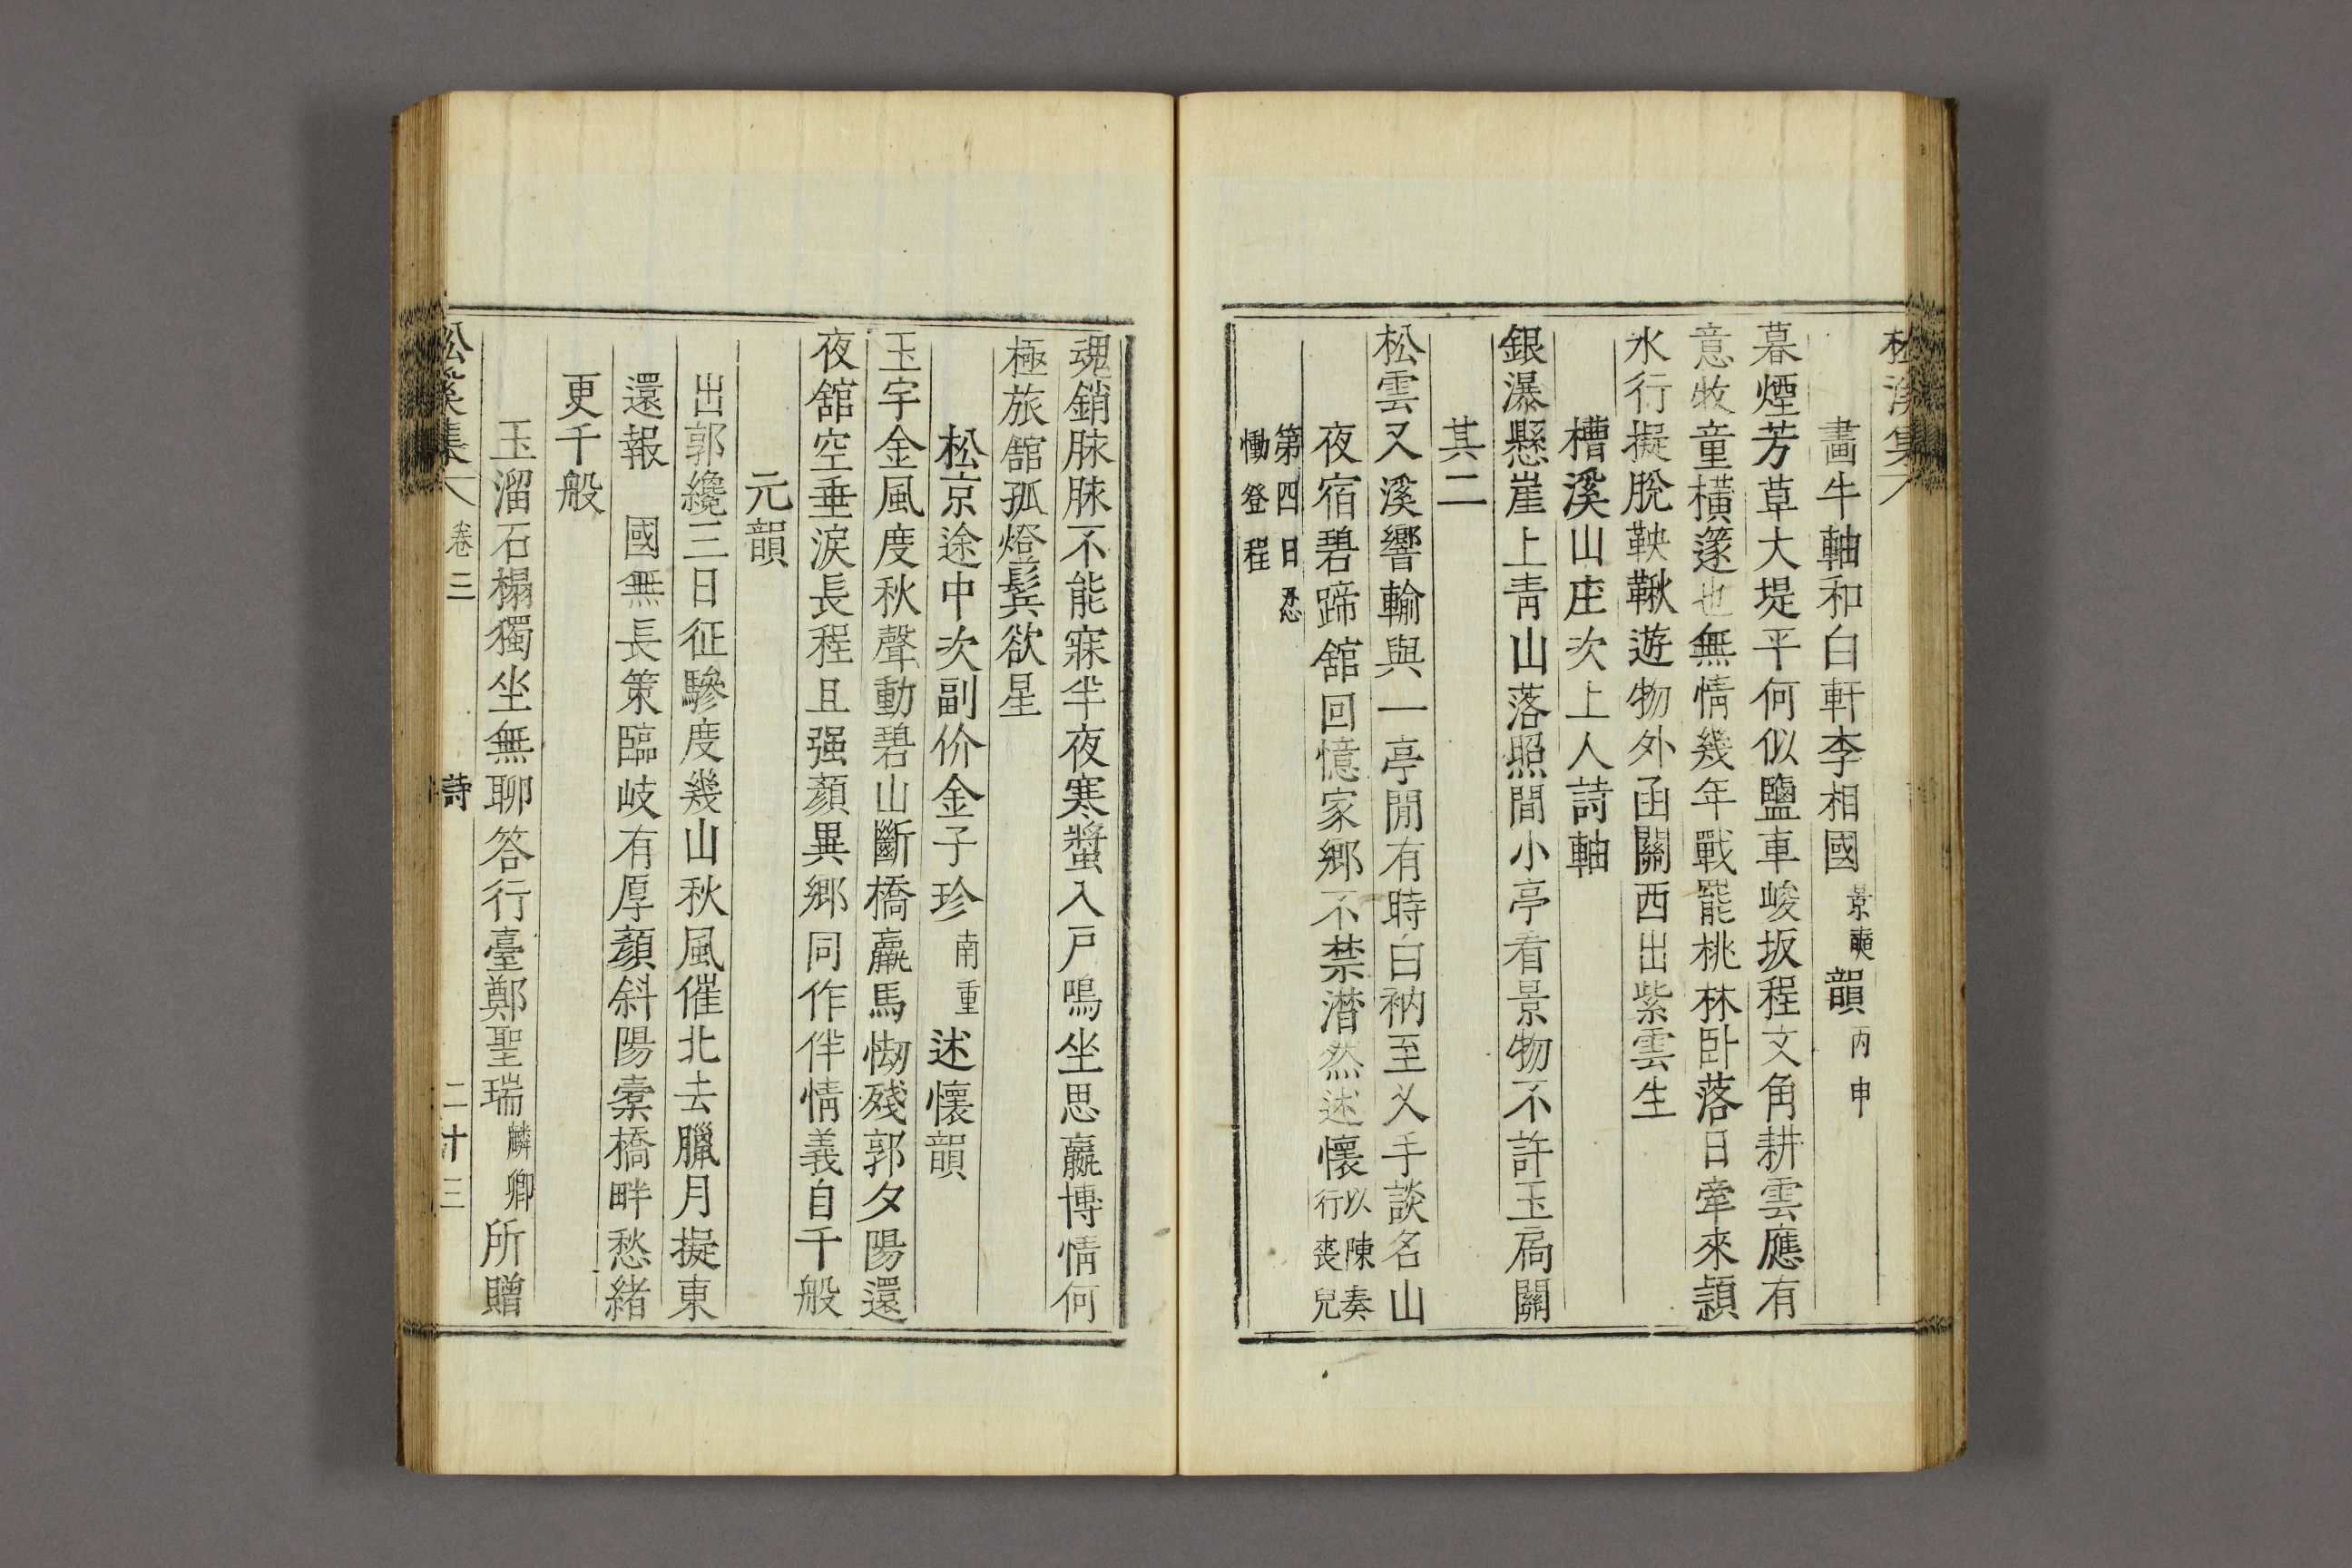 松溪集
畵牛軸和白軒李相國景奭韻丙申
暮煙芳草大堤平何似鹽車峻坂程文角耕雲應有
意牧童橫篴也無情幾年戰罷桃林卧落日牽來潁
水行擬脫鞅鞦遊物外函關西出紫雲生
槽溪山庄次上人詩軸
銀瀑懸崖上靑山落照間小亭看景物不許玉扃關
其二
松雲又溪響輸與一亭閒有時白衲至乂手談名山
夜宿碧蹄舘回憶家鄕不禁潛然述懷以陳奏行喪兒
第四日忍慟登程
魂銷脉脉不能寐半夜寒螿入戶鳴坐思嬴博情何
極旅舘孤燈鬂欲星
松京途中次副价金子珍南重述懷韻
玉宇金風度秋聲動碧山斷橋羸馬㤼殘郭夕陽還
夜舘空垂淚長程且强顏異鄕同作伴情義自千般
元韻
出郭纔三日征驂度幾山秋風催北去臘月擬東
還報 國無長策臨岐有厚顏斜陽橐橋畔愁緖
更千般
玉溜石榻獨坐無聊答行臺鄭聖瑞麟卿所贈
松溪集 卷三 詩 二十三